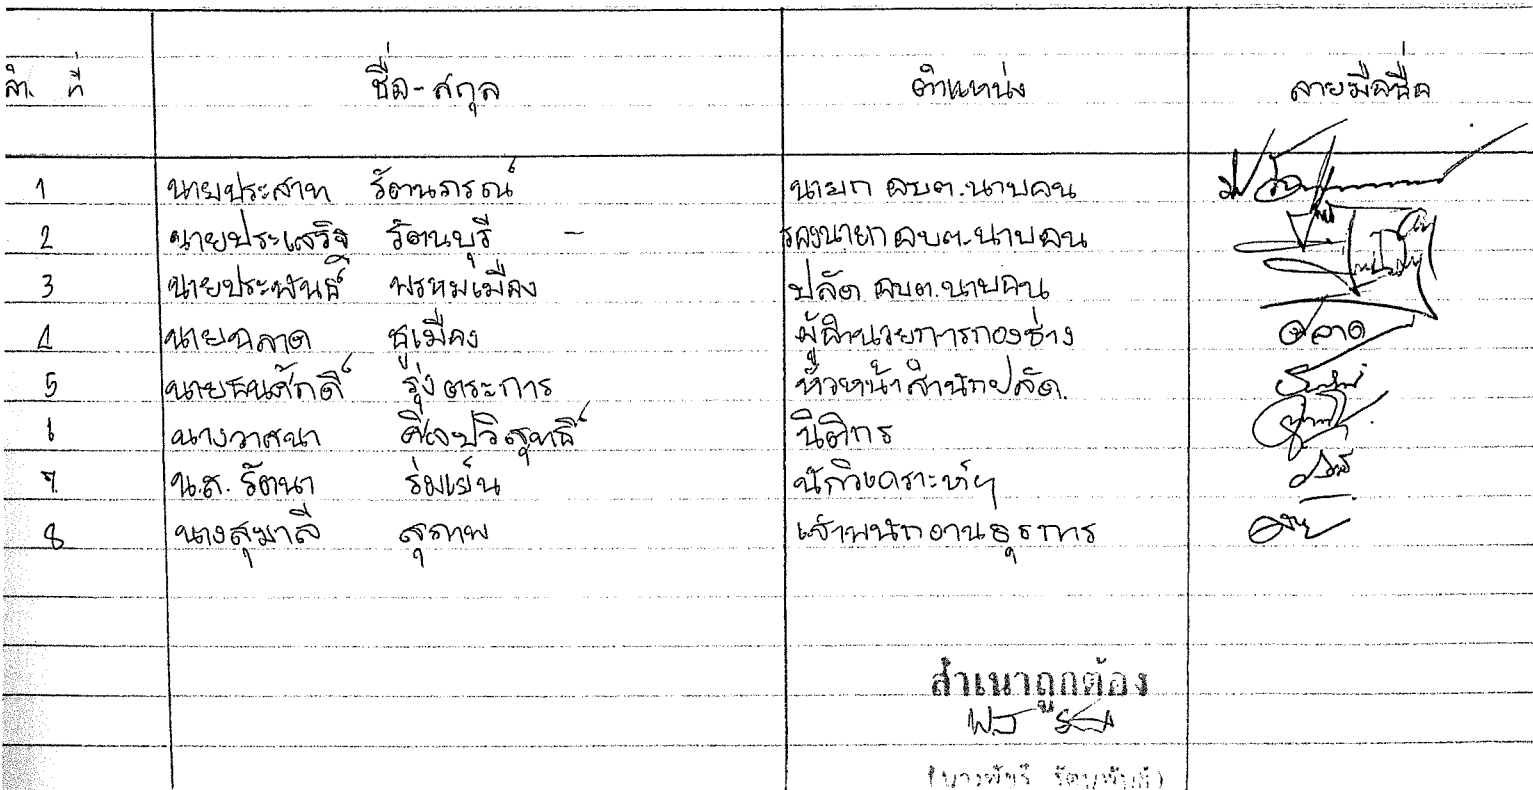 ลำ. ที่ ชื่อ-สกุล ตำแหน่ง ลายมือชื่อ
1 นายประสาท รัตนภรณ์ นายก อบต.นาบอน
2 นายประเสริฐ รัตนบุรี - รองนายก อบต.นาบอน
3 นายประพันธ์ พรหมเมือง ปลัด อบต.นาบอน
4 นายฉลาด ชูเมือง ผู้อำนวยการกองช่าง ฉลาด
5 นายธนศักดิ์ รุ่งตระการ หัวหน้าสำนักปลัด.
6 นางวาสนา นิติกร
7 น.ส. รัตนา ร่มเย็น นักวิเคราะห์ฯ
8 นางสุมาลี สุภาพ เจ้าพนักงานธุรการ
สำเนาถูกต้อง